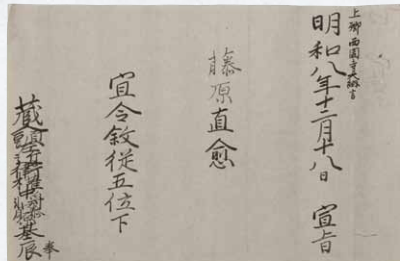 上卿 西園寺大納言
明和八年十二月十八日 宣旨
藤原直愈
宜令敘從五位下
蔵人頭右近衛権中将藤原基辰 奉